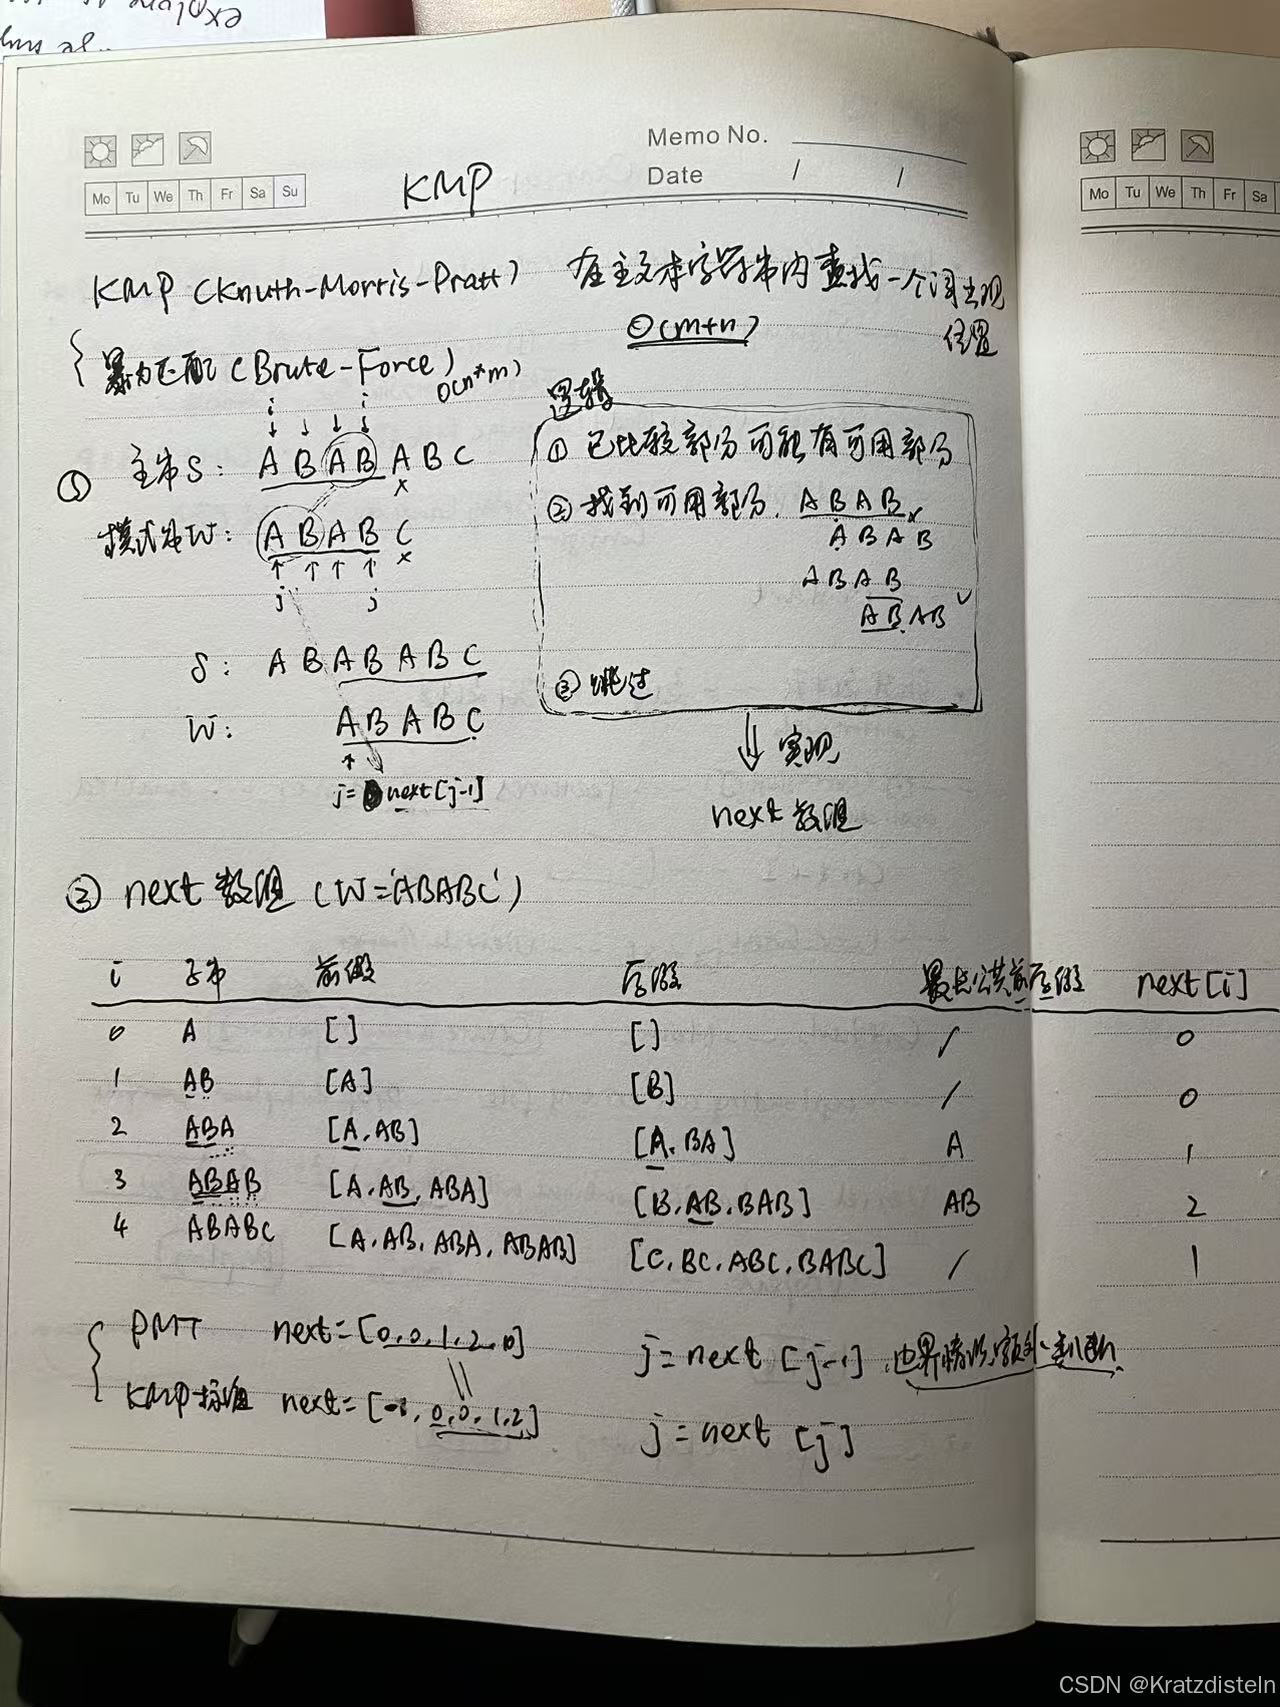 explore
Memo No.
Date / /
Mo Tu We Th Fr Sa Su
Mo Tu We Th Fr Sa
KMP
KMP (Knuth-Morris-Pratt) 在主文本字符串内查找一个词出现
位置
O(m+n)
暴力匹配 (Brute-Force) O(n*m)
i i
① 主串S: A B A B A B C
x
模式串W: A B A B C
x
j j
S: A B A B A B C
W: A B A B C
j= next[j-1]
逻辑
① 已比较部分可能有可用部分
② 找到可用部分. A B A B x
A B A B
A B A B
A B A B ✓
③ 跳过
⇓ 实现
next 数组
② next 数组 (W='ABABC')
i 子串 前缀 后缀 最长公共前后缀 next[i]
0 A [] [] / 0
1 AB [A] [B] / 0
2 ABA [A, AB] [A, BA] A 1
3 ABAB [A, AB, ABA] [B, AB, BAB] AB 2
4 ABABC [A, AB, ABA, ABAB] [C, BC, ABC, BABC] / 1
PMT next=[0,0,1,2,0] j=next [j-1]
KMP标准 next=[-1,0,0,1,2] j=next [j]
CSDN @Kratzdisteln